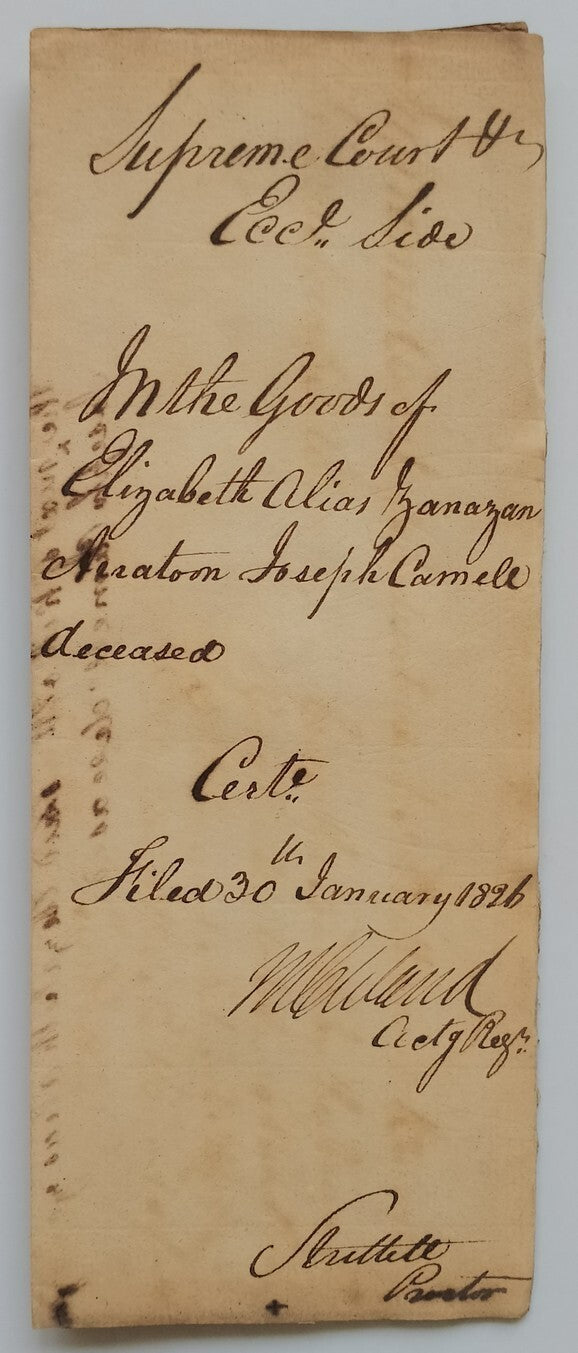 Supreme Court &c
Eccl. Side
In the Goods of
Elizabeth Alias Zanazan
Arratoon Joseph Camell
deceased
Certe.
Filed 30th January 1826
Actg Regr.
Proctor